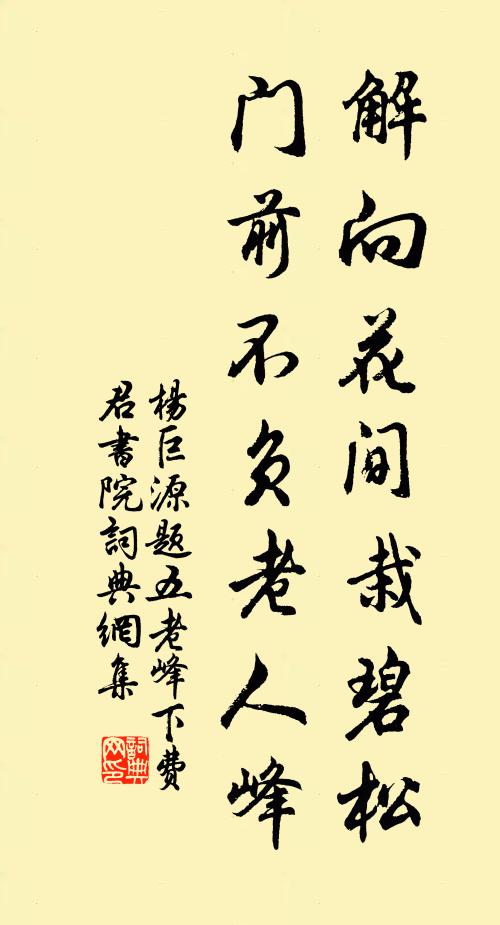 解向花间栽碧松
门前不负老人峰
杨巨源题五老峰下费
君书院词典网集
詞典
网印